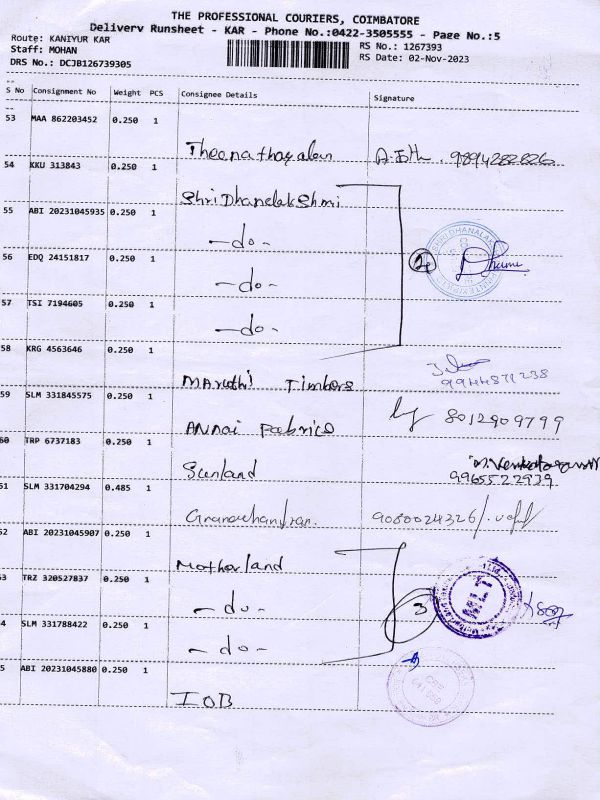 THE PROFESSIONAL COURIERS, COIMBATORE
Delivery Runsheet - KAR - Phone No.:0422-3505555 - Page No.:5
Route: KANIYUR KAR
Staff: MOHAN
DRS No.: DCJB126739305
RS No.: 1267393
RS Date: 02-Nov-2023
S No Consignment No Weight PCS Consignee Details Signature
53 MAA 862203452 0.250 1
Theenathayalan 9894282826
54 KKU 313843 0.250 1
Shri Dhanalakshmi
55 ABI 20231045935 0.250 1
-do-
56 EDQ 24151817 0.250 1
-do-
57 TSI 7194605 0.250 1
-do-
58 KRG 4563646 0.250 1
Maruthi Timbers 9944871238
59 SLM 331845575 0.250 1
Annai Fabrics 8012909799
60 TRP 6737183 0.250 1
Sunland 9965522939
61 SLM 331704294 0.485 1
Gnanachandran. 9080024326
62 ABI 20231045907 0.250 1
Motherland
3 TRZ 320527837 0.250 1
-do- 3 MLT
4 SLM 331788422 0.250 1
-do-
5 ABI 20231045880 0.250 1
IOB